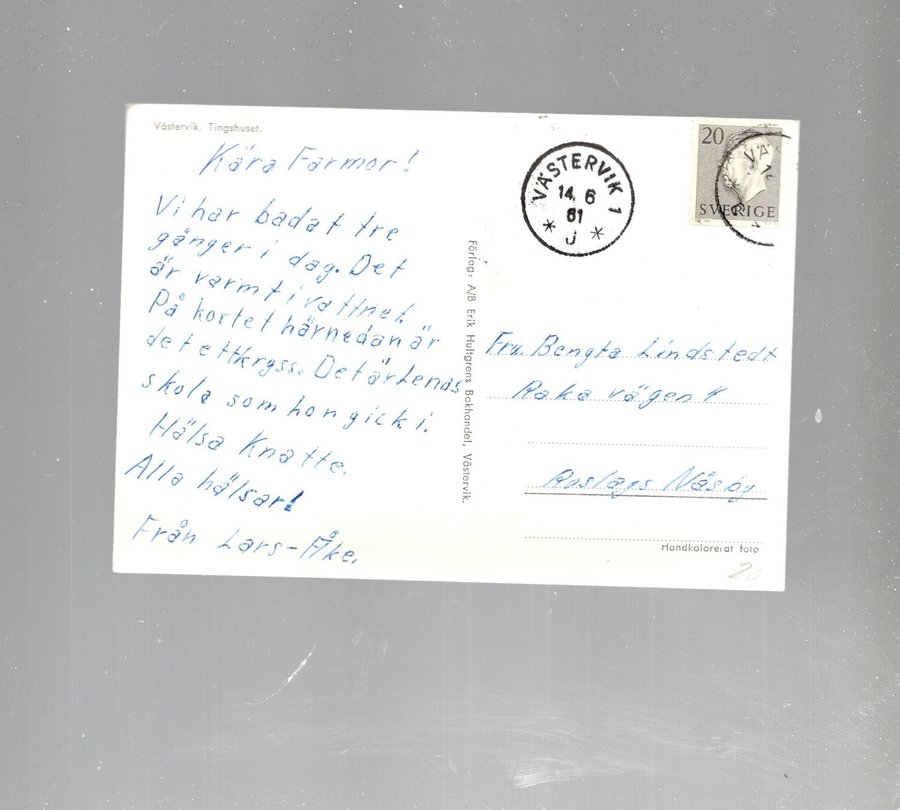 Västervik. Tingshuset.
Kära Farmor!
Vi har badat tre
gånger i dag. Det
är varmt i vattnet.
På kortet härnedan är
det ett kryss. Det är Lenas
skola som hon gick i.
Hälsa Knatte.
Alla hälsar!
Från Lars-Åke.
Förlag: A/B Erik Hultgrens Bokhandel, Västervik.
VÄSTERVIK 1
14. 6
61
* J *
20
SVERIGE
VÄ
Fru. Bengta Lindstedt
Raka vägen
Roslags Näsby
Handkolorerat foto
20